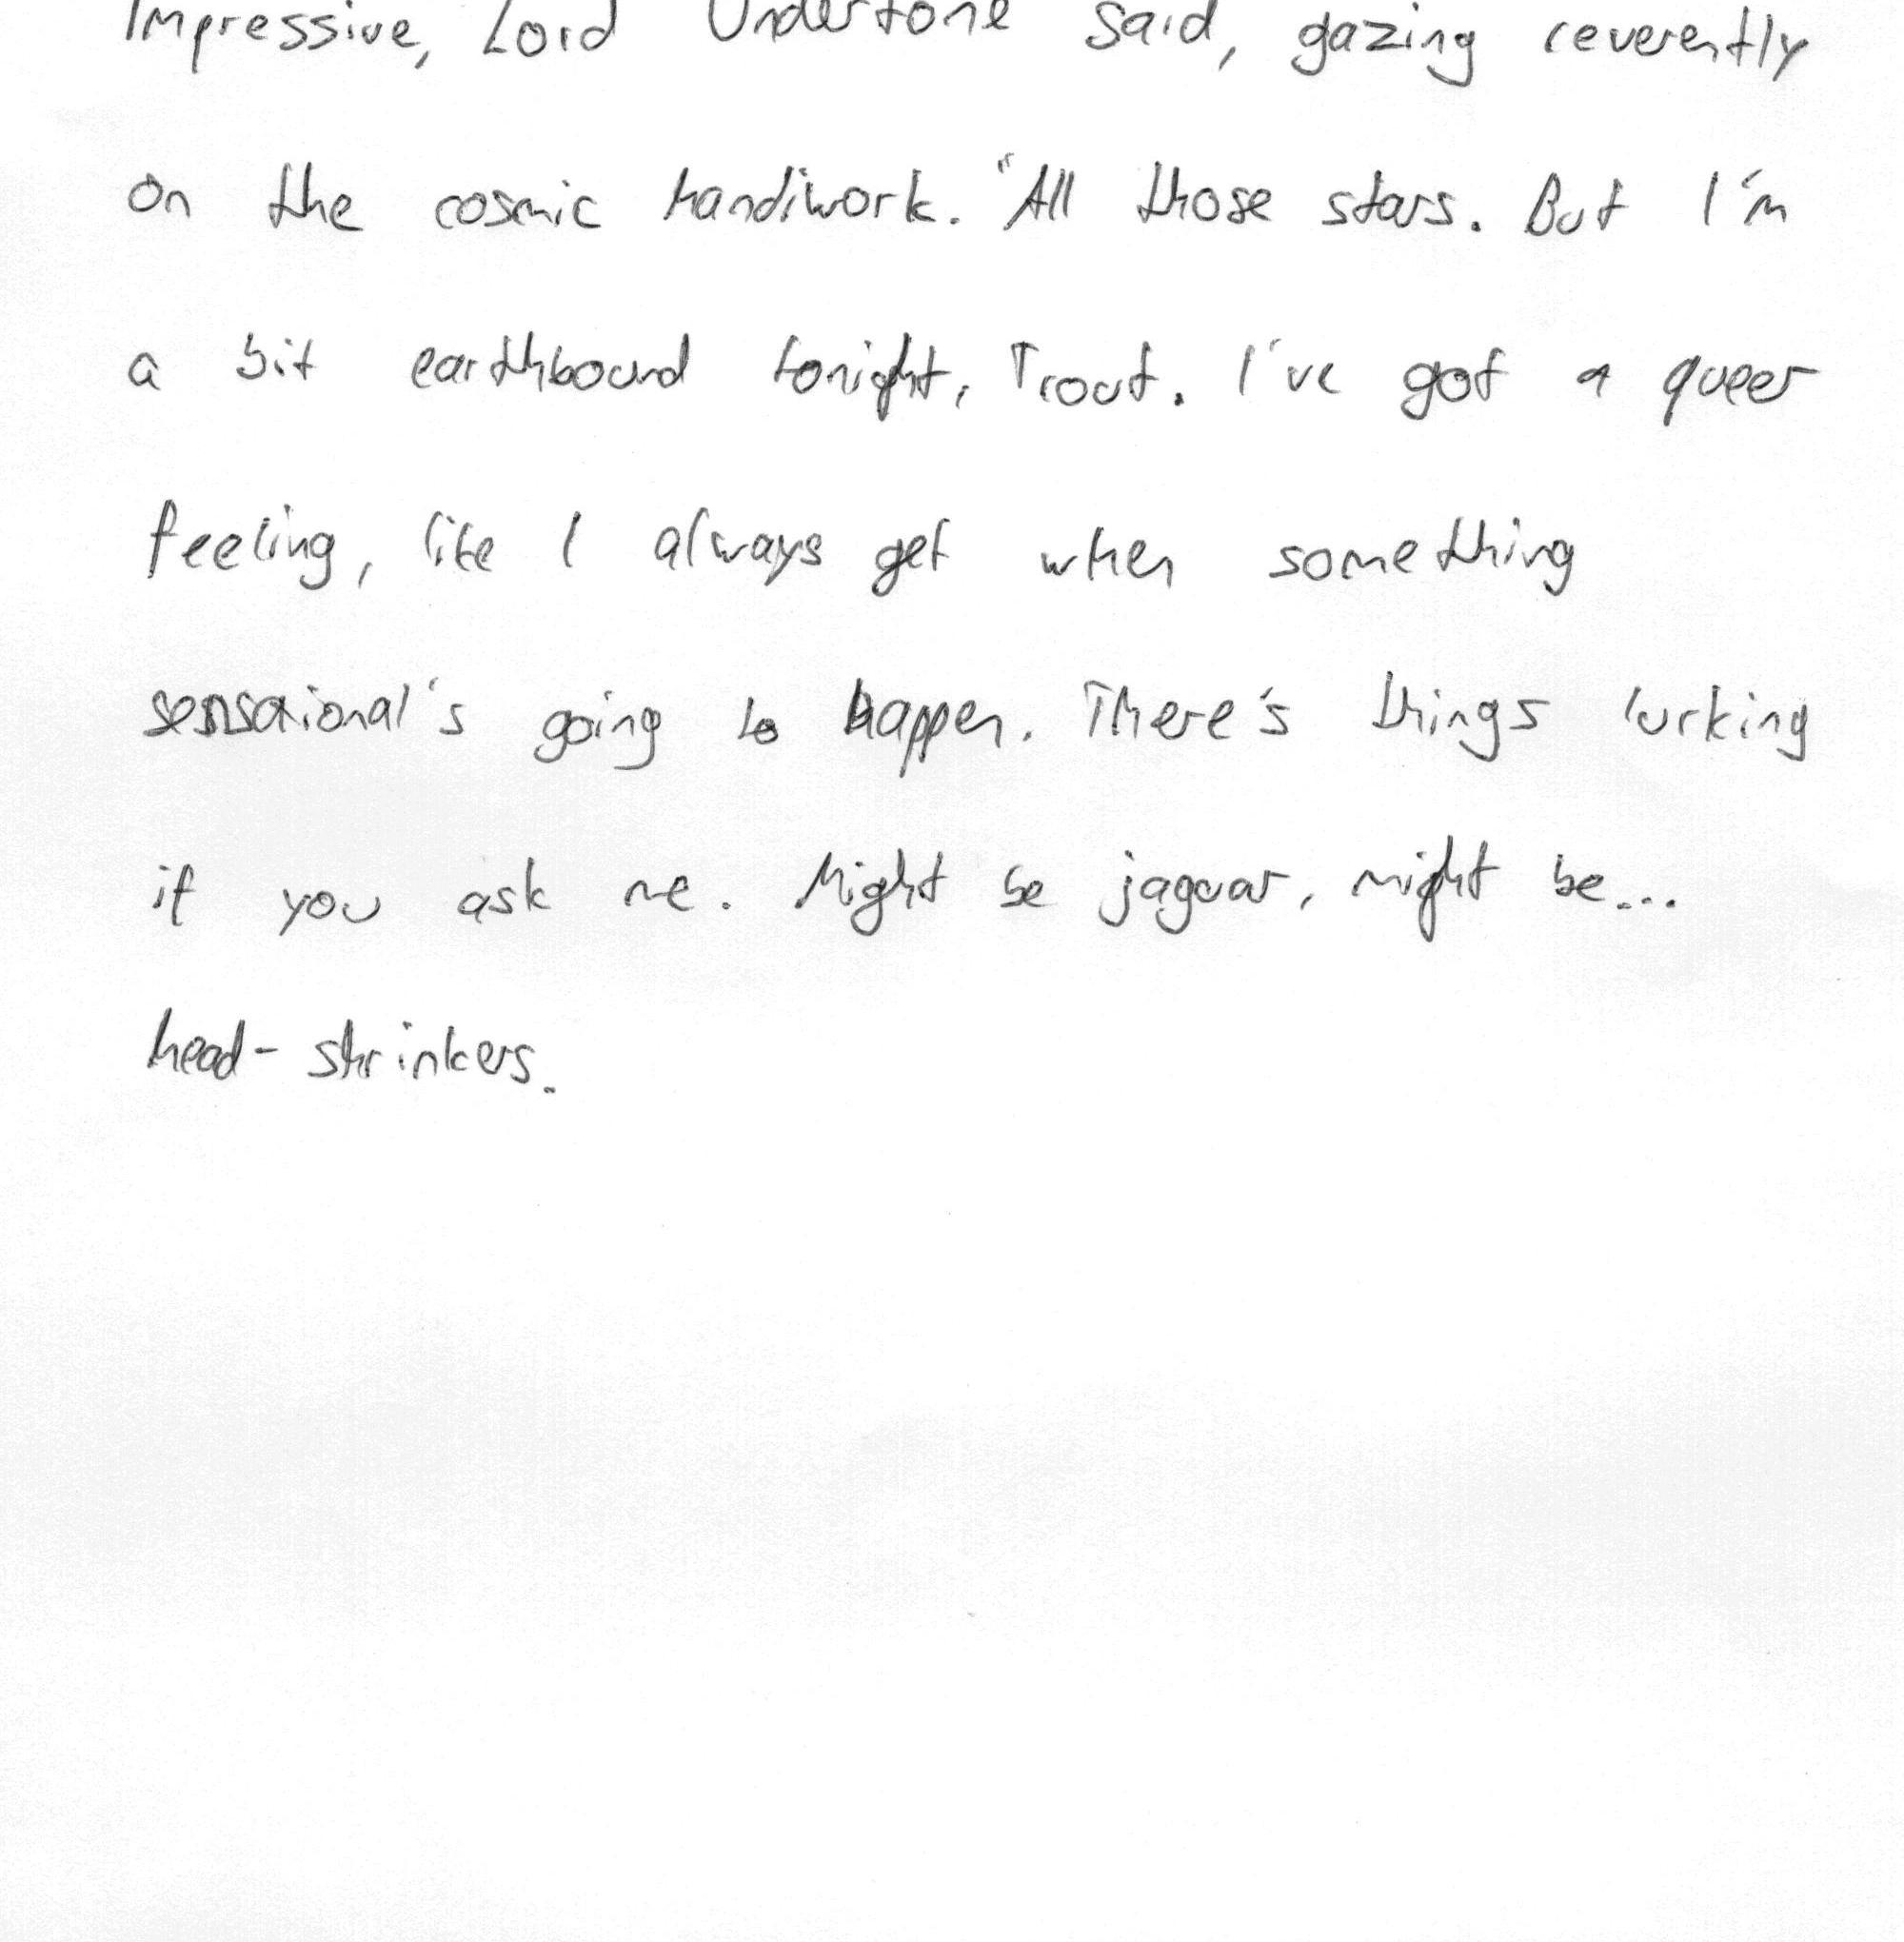 Impressive, Lord Undertone said, gazing reverently
on the cosmic handiwork. "All those stars. But I'm
a bit earthbound tonight, Trout. I've got a queer
feeling, like I always get when something
sensational's going to happen. There's things lurking
if you ask me. Might be jaguar, might be...
head-shrinkers.